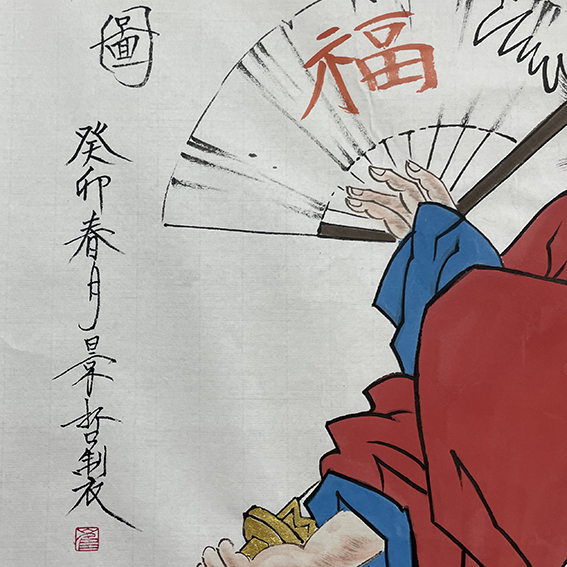 圖
癸卯春月景哲制衣
福